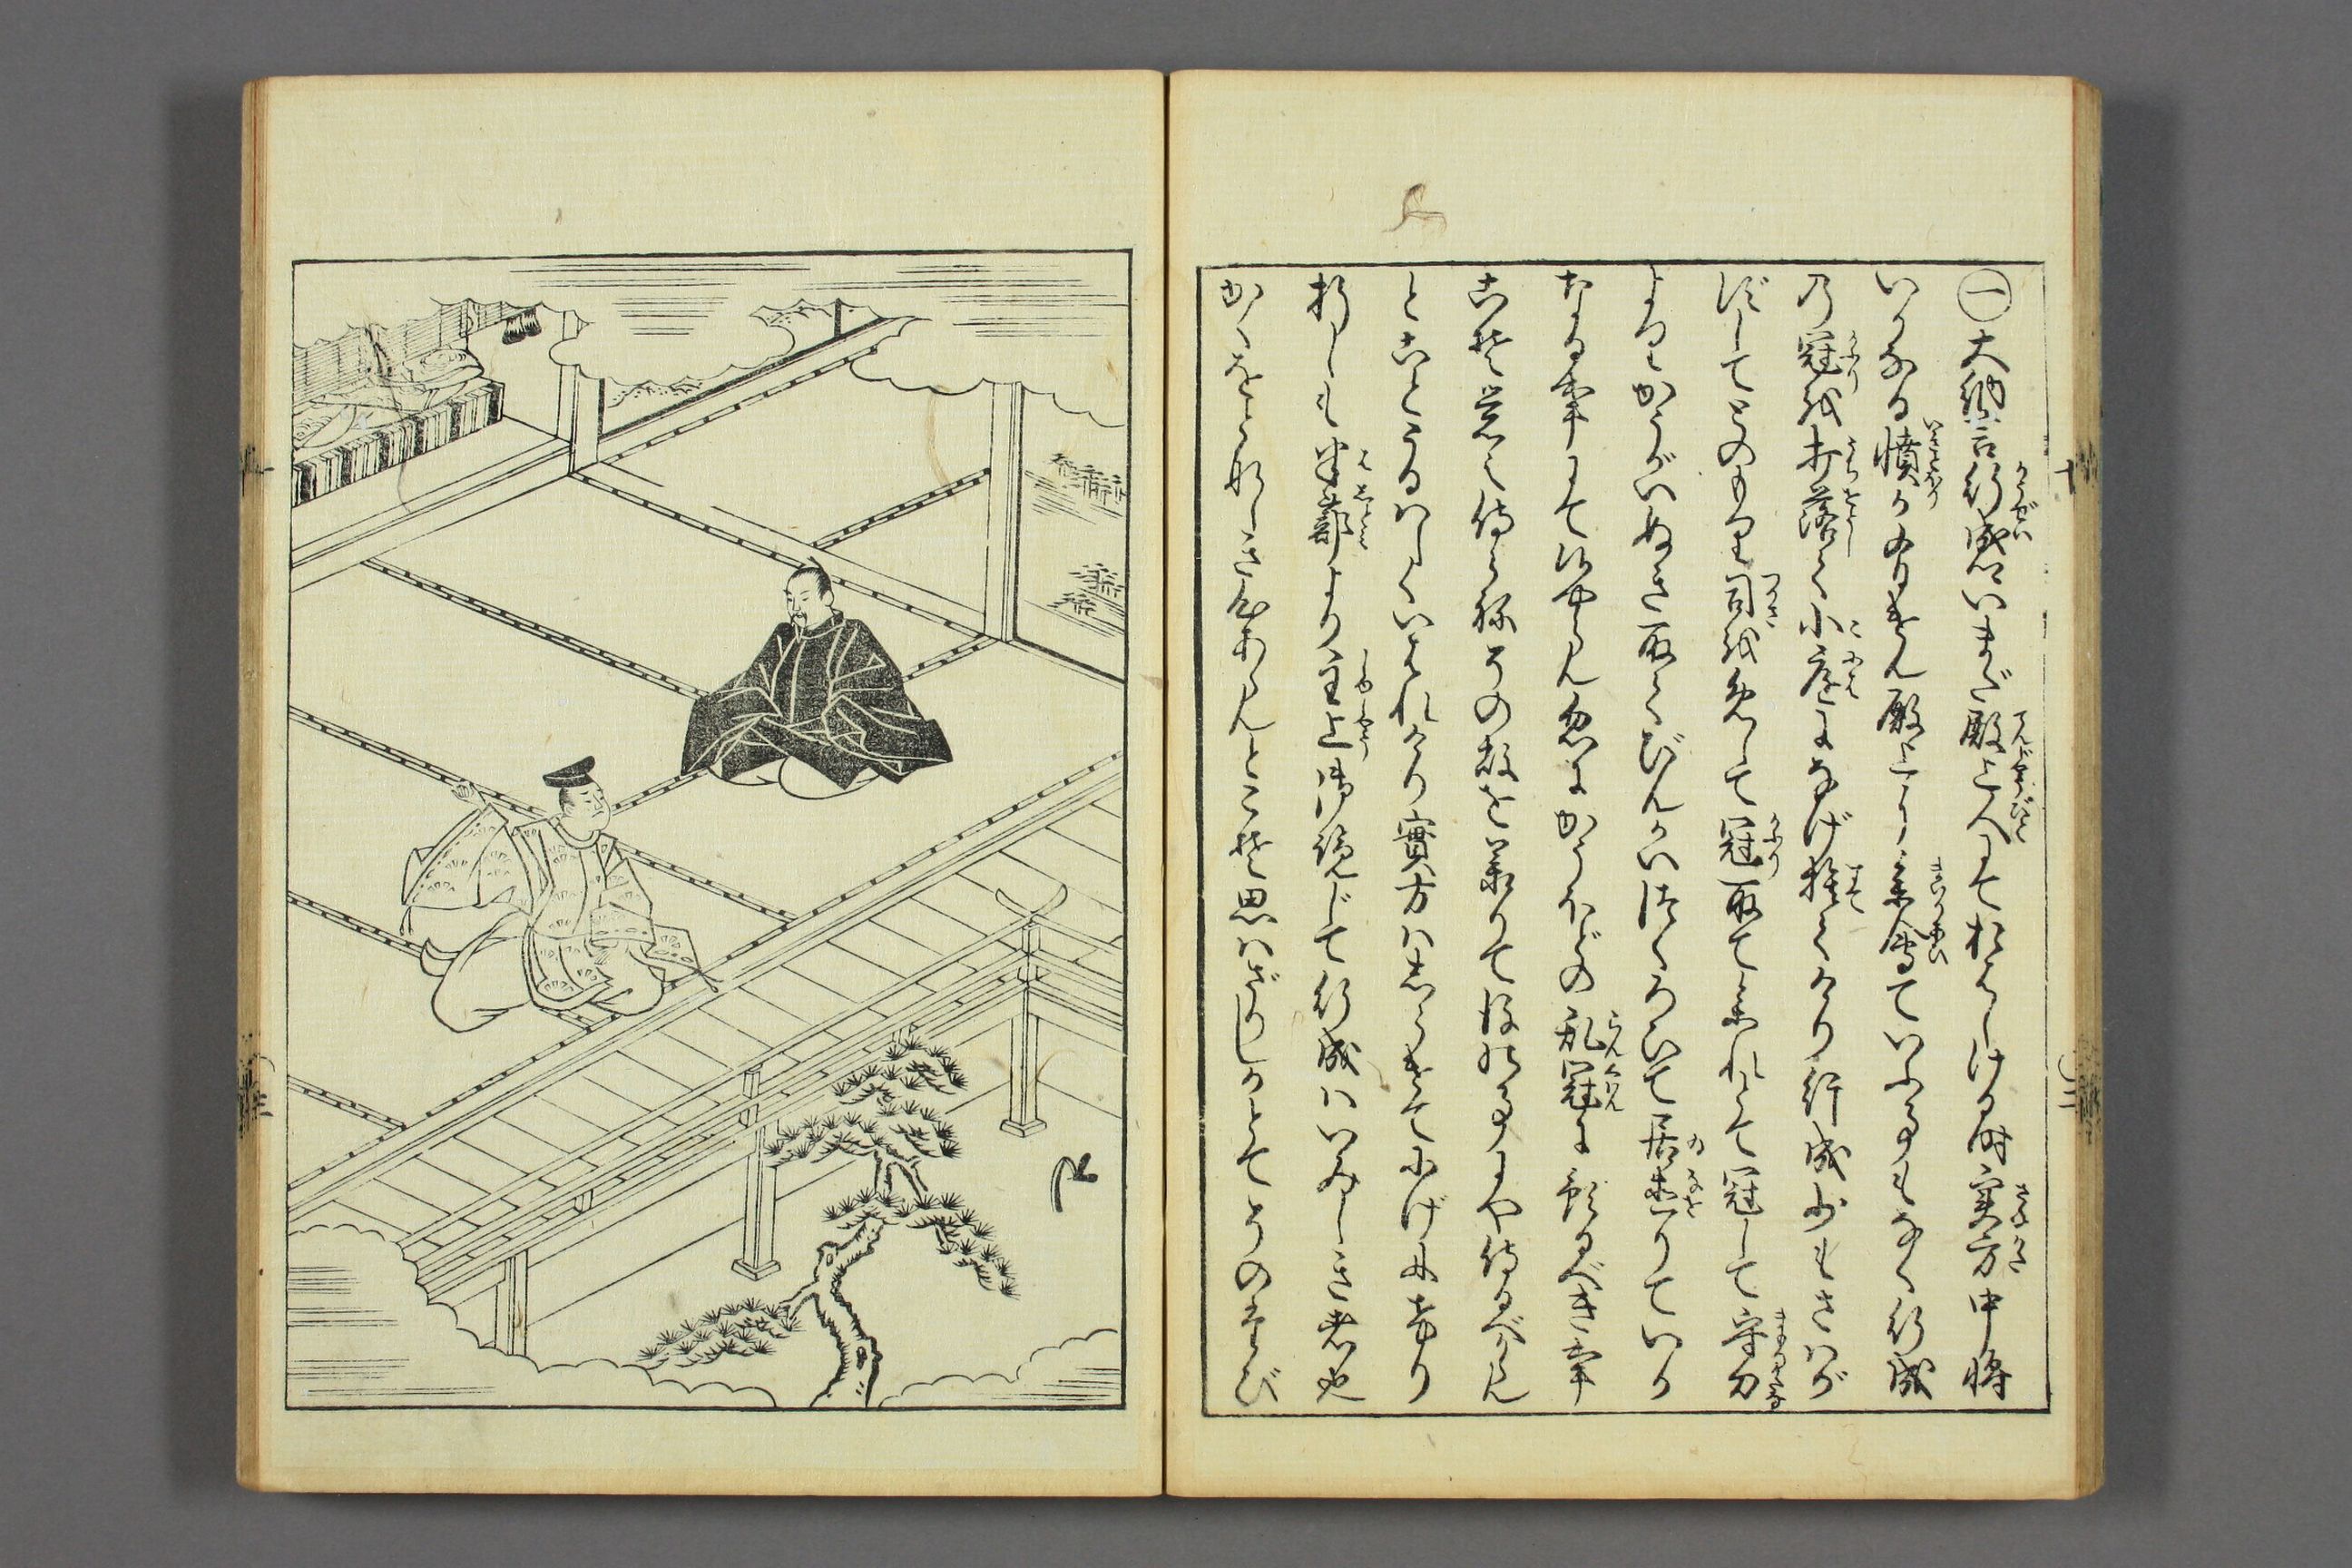 ㊀大納言行成卿いまだ殿上人にておはしける時実方中将
いかなる憤か有けん殿上に参會ていふ事もなく行成
の冠を打落て小庭になげ捨てけり行成少もさハが
ずしてとのもり司を召て冠取て参れとて冠して守刀
よりかうがいぬき取てびんかいつくろひて居直りていか
なる事にて候やらん忽にかうほどの乱冠に預るべき事
こそ覚え侍らねその故を承りて後の事にや侍るべからん
とことうるハしくいはれけり實方ハしらけてにげにけり
折しも半蔀より主上御覧じて行成ハいみじき者也
かくをとなしき心あらんとこそ思ハざりしかとてそのたび